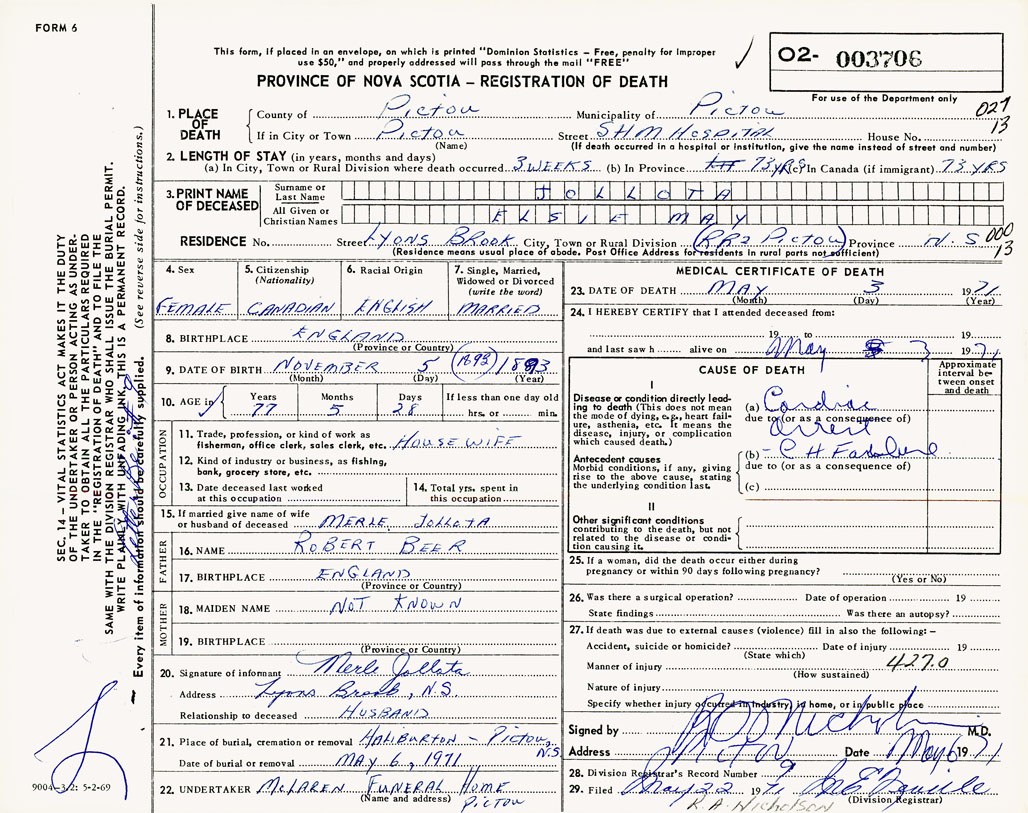 FORM 6
This form, if placed in an envelope, on which is printed "Dominion Statistics – Free, penalty for improper
use $50," and properly addressed will pass through the mail "FREE"
PROVINCE OF NOVA SCOTIA – REGISTRATION OF DEATH
02- 003706
For use of the Department only
027
13
1. PLACE OF DEATH
County of Pictou Municipality of Pictou
If in City or Town Pictou Street SHM Hospital House No.
(Name) (If death occurred in a hospital or institution, give the name instead of street and number)
2. LENGTH OF STAY (in years, months and days)
(a) In City, Town or Rural Division where death occurred 3 WEEKS (b) In Province 73 YRS (c) In Canada (if immigrant) 73 YRS
3. PRINT NAME OF DECEASED
Surname or Last Name JOLLOTA
All Given or Christian Names ELSIE MAY
RESIDENCE No. Street LYONS BROOK City, Town or Rural Division (RR2 PICTOU) Province N.S
000
13
(Residence means usual place of abode. Post Office Address for residents in rural parts not sufficient)
4. Sex
FEMALE
5. Citizenship (Nationality)
CANADIAN
6. Racial Origin
ENGLISH
7. Single, Married, Widowed or Divorced (write the word)
MARRIED
8. BIRTHPLACE ENGLAND
(Province or Country)
9. DATE OF BIRTH NOVEMBER 5 (1893) 1893
(Month) (Day) (Year)
10. AGE in Years Months Days If less than one day old
77 5 28 hrs. or min.
OCCUPATION
11. Trade, profession, or kind of work as
fisherman, office clerk, sales clerk, etc. HOUSEWIFE
12. Kind of industry or business, as fishing,
bank, grocery store, etc.
13. Date deceased last worked
at this occupation
14. Total yrs. spent in
this occupation
15. If married give name of wife
or husband of deceased MERLE JOLLOTA
FATHER
16. NAME ROBERT BEER
17. BIRTHPLACE ENGLAND
(Province or Country)
MOTHER
18. MAIDEN NAME NOT KNOWN
19. BIRTHPLACE
(Province or Country)
20. Signature of informant Merle Jollota
Address Lyons Brook, N.S.
Relationship to deceased HUSBAND
21. Place of burial, cremation or removal HALIBURTON – PICTOU, N.S
Date of burial or removal MAY 6, 1971
22. UNDERTAKER McLAREN FUNERAL HOME
(Name and address) PICTOU
MEDICAL CERTIFICATE OF DEATH
23. DATE OF DEATH MAY 3 1971
(Month) (Day) (Year)
24. I HEREBY CERTIFY that I attended deceased from:
19 to 19
and last saw h alive on May 3 1971
CAUSE OF DEATH
Approximate interval between onset and death
I
Disease or condition directly leading
to death (This does not mean
the mode of dying, e.g., heart failure,
asthenia, etc. It means the
disease, injury, or complication
which caused death.)
(a) Cardiac
due to (or as a consequence of)
arrest
Antecedent causes
Morbid conditions, if any, giving
rise to the above cause, stating
the underlying condition last.
(b) - C H Failure
due to (or as a consequence of)
(c)
II
Other significant conditions
contributing to the death, but not
related to the disease or condition
causing it.
25. If a woman, did the death occur either during
pregnancy or within 90 days following pregnancy?
(Yes or No)
26. Was there a surgical operation? Date of operation 19
State findings Was there an autopsy?
27. If death was due to external causes (violence) fill in also the following: –
Accident, suicide or homicide? Date of injury 19
(State which)
427.0
Manner of injury
(How sustained)
Nature of injury
Specify whether injury occurred in industry, in home, or in public place
Signed by M.D.
Address Pictou Date May 6 1971
28. Division Registrar's Record Number 9
29. Filed May 22 1971
(Division Registrar)
R.A. Nicholson
SEC. 14 – VITAL STATISTICS ACT MAKES IT THE DUTY
OF THE UNDERTAKER OR PERSON ACTING AS UNDERTAKER
TO OBTAIN ALL THE PARTICULARS REQUIRED
IN THE "REGISTRATION OF DEATH" AND TO FILE THE
SAME WITH THE DIVISION REGISTRAR WHO SHALL ISSUE THE BURIAL PERMIT.
WRITE PLAINLY WITH UNFADING INK, THIS IS A PERMANENT RECORD.
Every item of information should be carefully supplied. (See reverse side for instructions.)
9004-3/2: 5-2-69